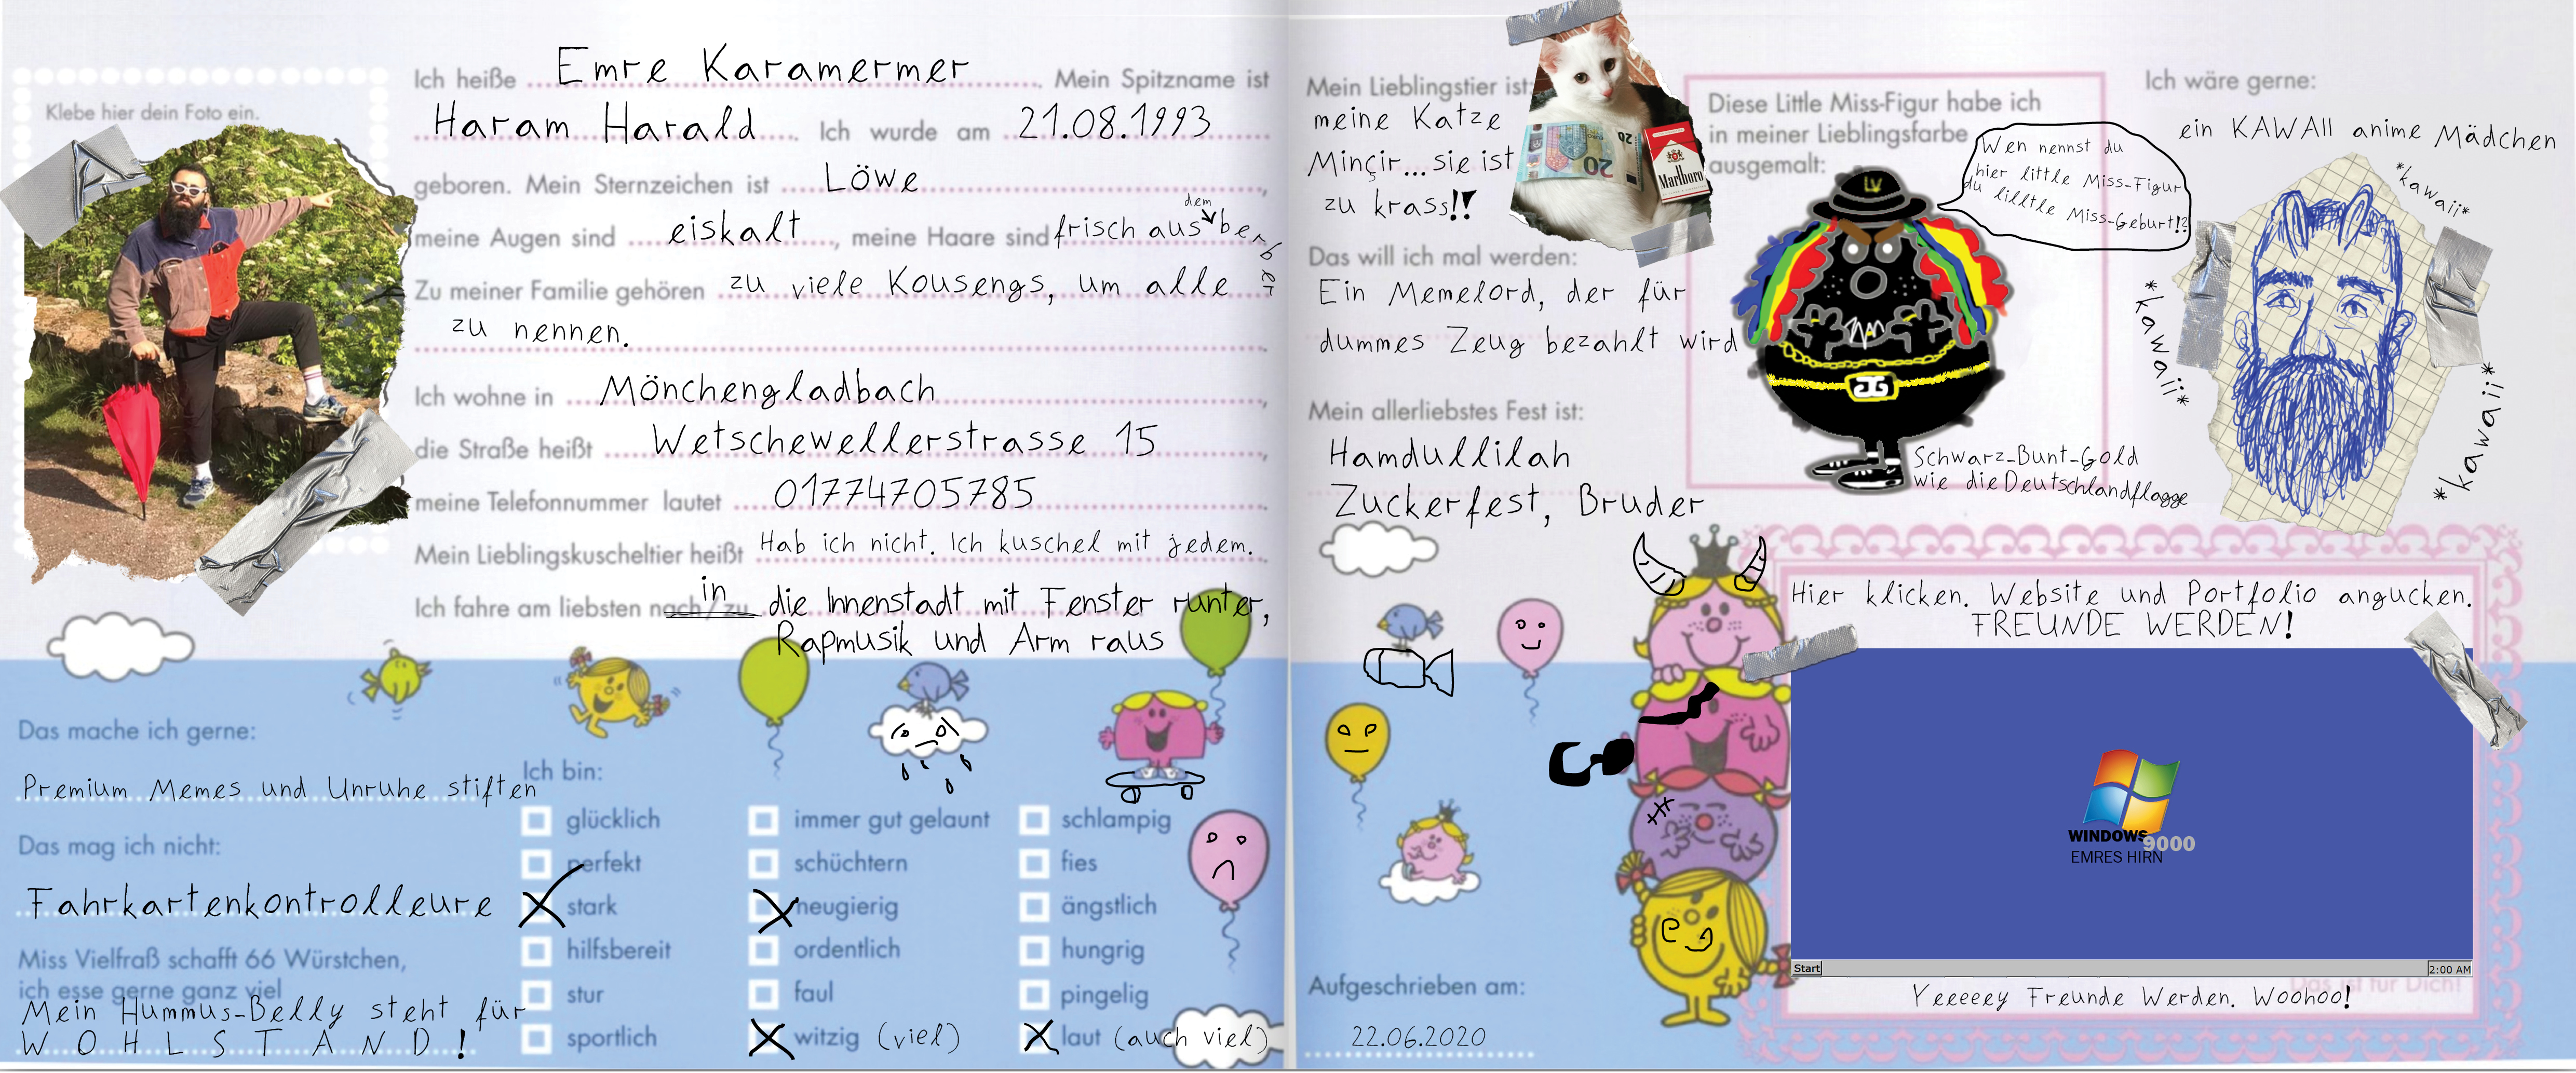 Klebe hier dein Foto ein.
Ich heiße Emre Karamermer. Mein Spitzname ist
Haram Harald. Ich wurde am 21.08.1993
geboren. Mein Sternzeichen ist Löwe,
meine Augen sind eiskalt, meine Haare sind frisch aus dem berber
Zu meiner Familie gehören zu viele Kousengs, um alle
zu nennen.
Ich wohne in Mönchengladbach,
die Straße heißt Wetschewellerstrasse 15,
meine Telefonnummer lautet 01774705785.
Mein Lieblingskuscheltier heißt Hab ich nicht. Ich kuschel mit jedem.
Ich fahre am liebsten nach/zu in die Innenstadt mit Fenster runter,
Rapmusik und Arm raus
Das mache ich gerne:
Premium Memes und Unruhe stiften
Das mag ich nicht:
Fahrkartenkontrolleure
Miss Vielfraß schafft 66 Würstchen,
ich esse gerne ganz viel
Mein Hummus-Belly steht für
W O H L S T A N D !
Ich bin:
glücklich
perfekt
stark
hilfsbereit
stur
sportlich
immer gut gelaunt
schüchtern
neugierig
ordentlich
faul
witzig (viel)
schlampig
fies
ängstlich
hungrig
pingelig
laut (auch viel)
Mein Lieblingstier ist:
meine Katze
Minçir... sie ist
zu krass!!
20
20
Marlboro
Das will ich mal werden:
Ein Memelord, der für
dummes Zeug bezahlt wird
Mein allerliebstes Fest ist:
Hamdullilah
Zuckerfest, Bruder
Diese Little Miss-Figur habe ich
in meiner Lieblingsfarbe
ausgemalt:
LV
Wen nennst du
hier little Miss-Figur
du lilttle Miss-Geburt!?
Schwarz-Bunt-Gold
wie die Deutschlandflagge
Ich wäre gerne:
ein KAWAII anime Mädchen
*kawaii*
*kawaii*
*kawaii*
Hier klicken. Website und Portfolio angucken.
FREUNDE WERDEN!
WINDOWS 9000
EMRES HIRN
Start
2:00 AM
Das ist für Dich!
Yeeeeey Freunde Werden. Woohoo!
Aufgeschrieben am:
22.06.2020